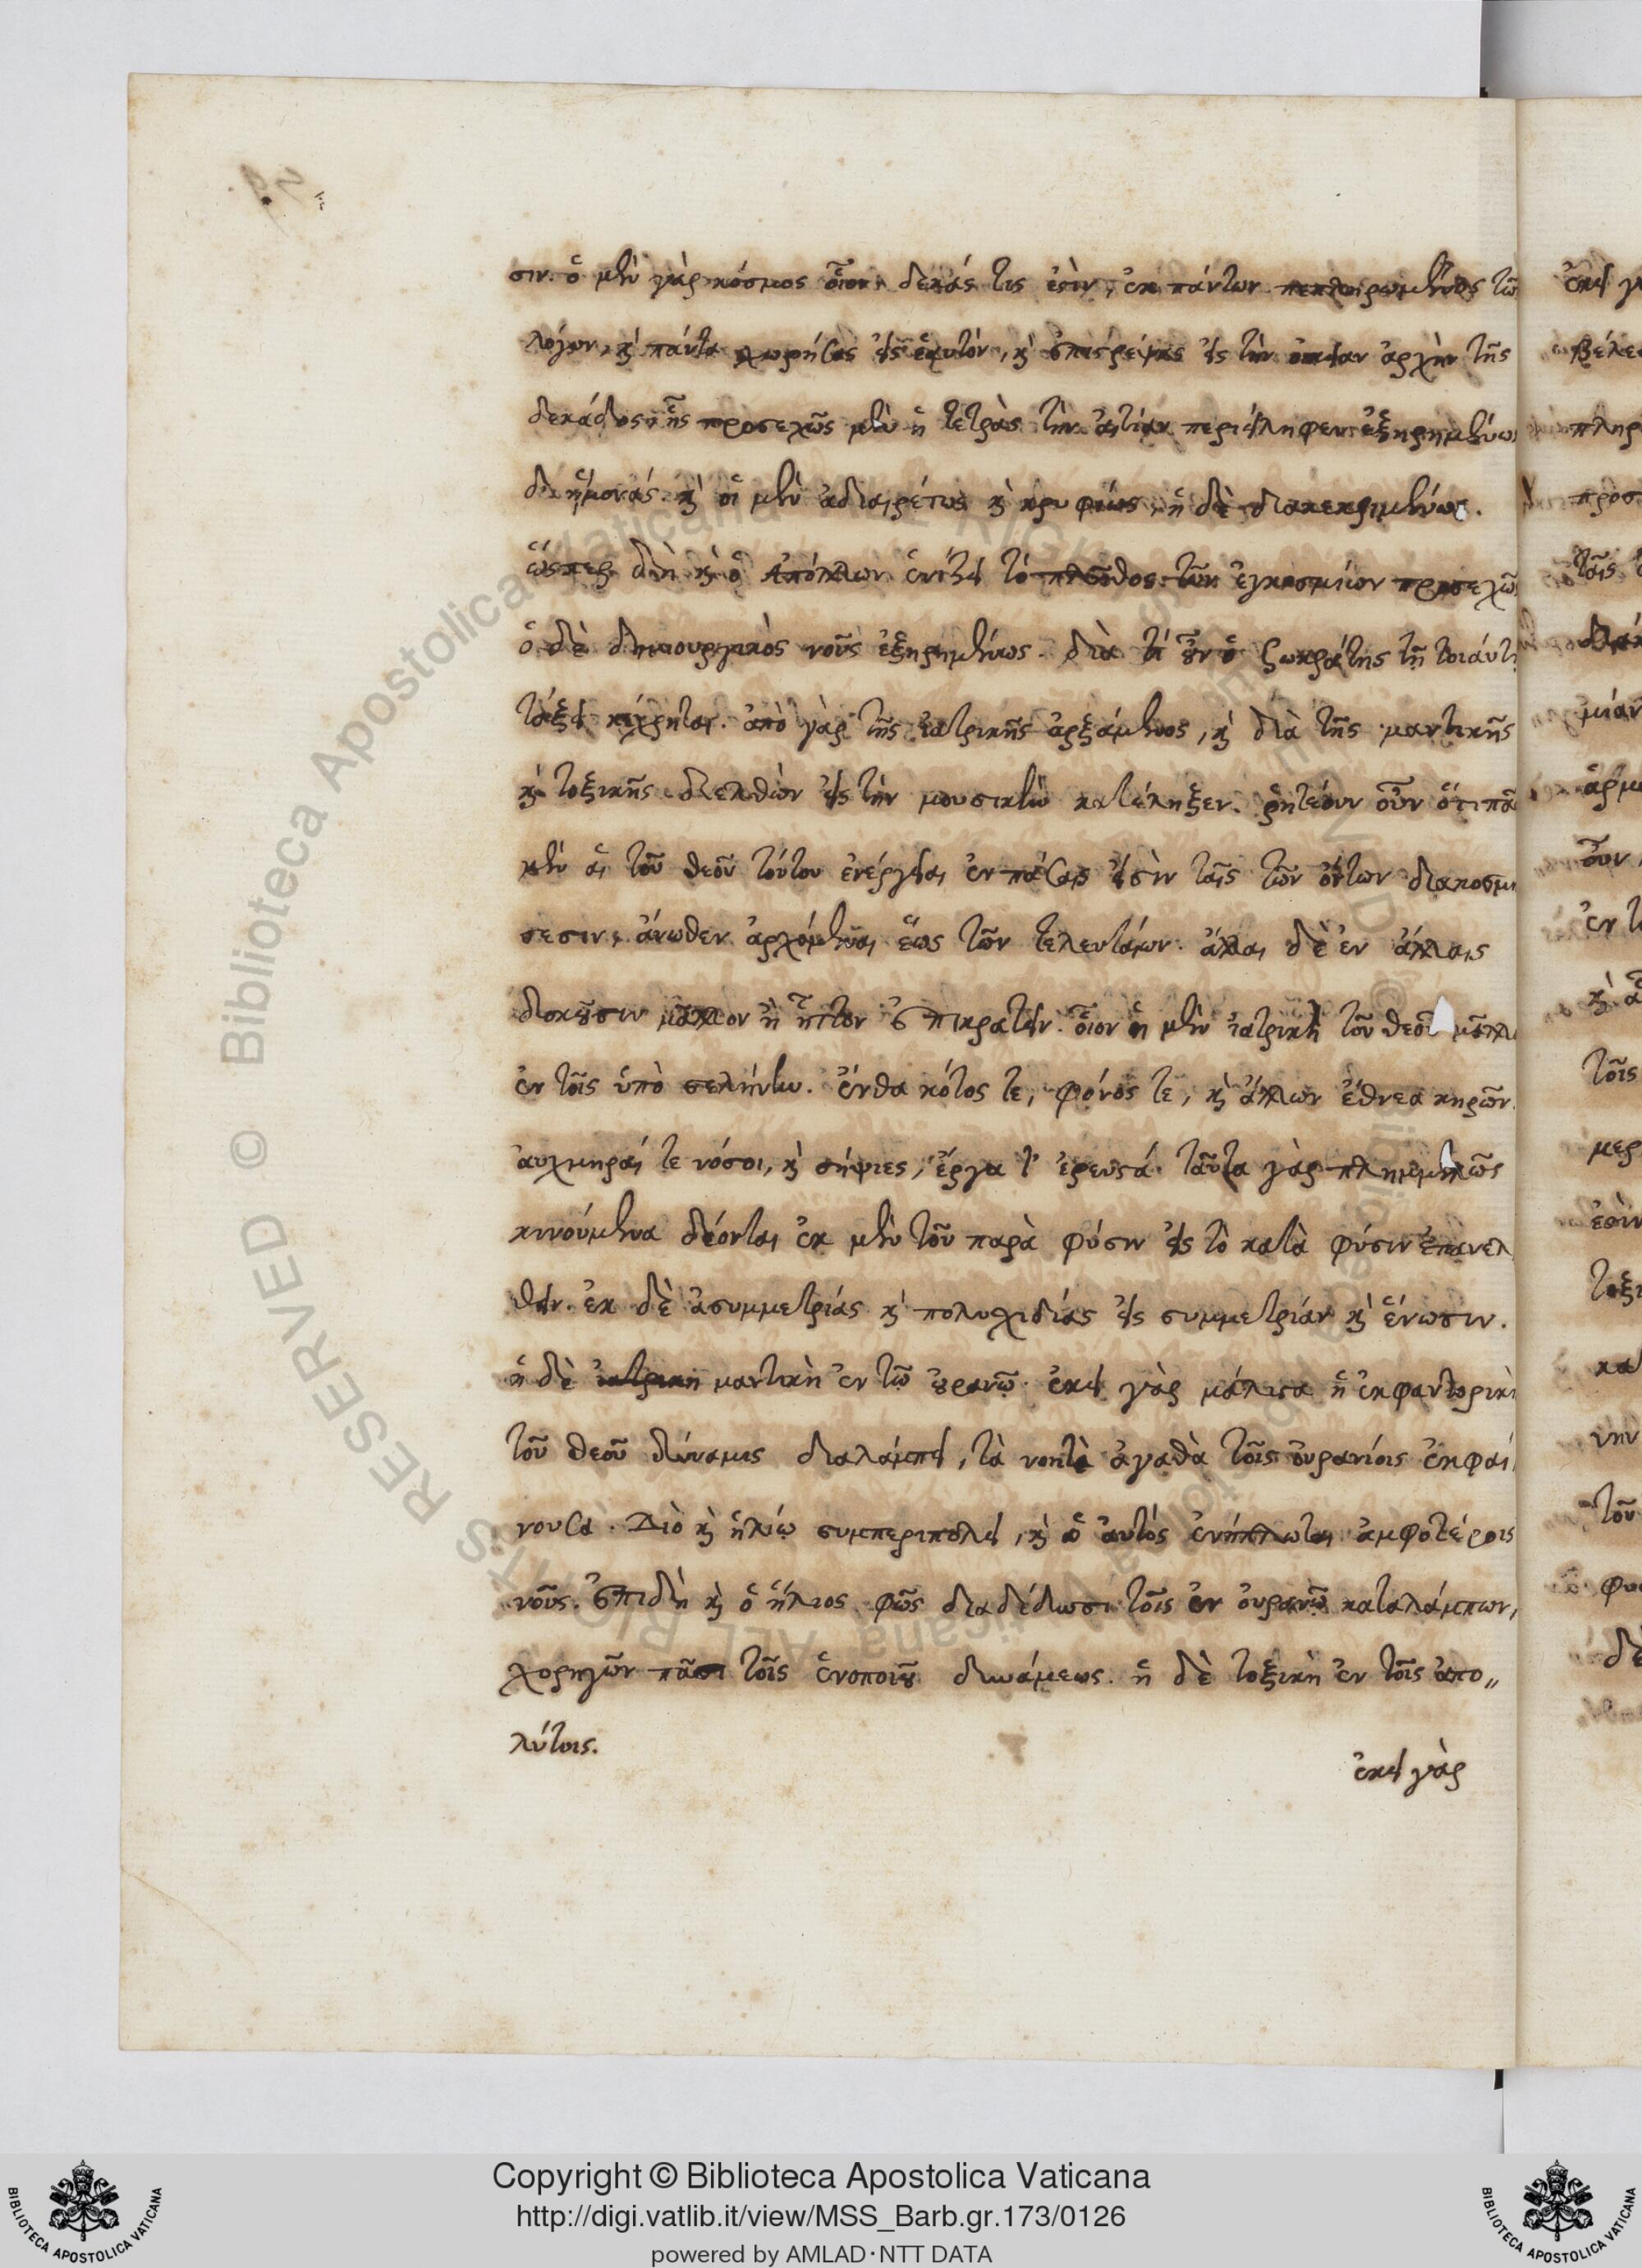 σιν. ὁ μὲν γὰρ κόσμος οἷον δεκάς τις ἐστὶν, ἐκ πάντων πεπληρωμένος τῶ
λόγων, καὶ πάντα χωρήσας εἰς ἑαυτόν, καὶ ἐπιστρέψας εἰς τὴν οἰκείαν ἀρχὴν τῆς
δεκάδος, ἧς προσεχῶς μὲν ἡ τετρὰς τὴν αἰτίαν περιείληφεν ἐξῃρημένως
δὲ ἡ μονάς. καὶ οἱ μὲν ἀδιαιρέτως καὶ κρυφίως, ἡ δὲ διακεκριμένως.
ὥσπερ δὴ καὶ ὁ Ἀπόλλων ἑνίζει τὸ πλῆθος τῶν ἐγκοσμίων προσεχῶς
ὁ δὲ δημιουργικὸς νοῦς ἐξῃρημένως. διὰ τί οὖν ὁ Σωκράτης τῇ τοιαύτῃ
τάξει κέχρηται. ἀπὸ γὰρ τῆς ἰατρικῆς ἀρξάμενος, καὶ διὰ τῆς μαντικῆς
καὶ τοξικῆς διελθὼν εἰς τὴν μουσικὴν κατέληξεν. ῥητέον οὖν ὅτι πᾶ
μὲν αἱ τοῦ θεοῦ τούτου ἐνέργειαι ἐν πάσαις εἰσὶν ταῖς τῶν ὄντων διακοσμη
σεσιν, ἄνωθεν ἀρχόμεναι ἕως τῶν τελευταίων. ἄλλαι δὲ ἐν ἄλλαις
δοκοῦσιν μᾶλλον ἢ ἧττον ἐπικρατεῖν. οἷον ἡ μὲν ἰατρικὴ τοῦ θεοῦ μᾶλλο
ἐν τοῖς ὑπὸ σελήνην. ἔνθα κότος τε, φόνος τε, καὶ ἄλλων ἔθνεα κηρῶν.
αὐχμηραί τε νόσοι, καὶ σήψιες, ἔργα τ' ἐρευστά. ταῦτα γὰρ πλημμελῶς
κινούμενα δέονται ἐκ μὲν τοῦ παρὰ φύσιν εἰς τὸ κατὰ φύσιν ἐπανελ
θεῖν. ἐκ δὲ ἀσυμμετρίας καὶ πολυχιδίας εἰς συμμετρίαν καὶ ἕνωσιν.
ἡ δὲ ἰατρικὴ μαντικὴ ἐν τῷ οὐρανῷ. ἐκεῖ γὰρ μάλιστα ἡ ἐκφαντορικὴ
τοῦ θεοῦ δύναμις διαλάμπει, τὰ νοητὰ ἀγαθὰ τοῖς οὐρανίοις ἐκφαί
νουσα. Διὸ καὶ ἡλίῳ συμπεριπολεῖ, καὶ ὁ αὐτός ἐνήπλωται ἀμφοτέροις
νοῦς. ἐπιδὴ καὶ ὁ ἥλιος φῶς διαδίδωσι τοῖς ἐν οὐρανῷ καταλάμπων,
χορηγῶν πᾶσι τοῖς ἑνοποιοῦ δυνάμεως. ἡ δὲ τοξικὴ ἐν τοῖς ἀπο„
λύτοις.
ἐκεῖ γὰρ
Copyright © Biblioteca Apostolica Vaticana
http://digi.vatlib.it/view/MSS_Barb.gr.173/0126
powered by AMLAD·NTT DATA